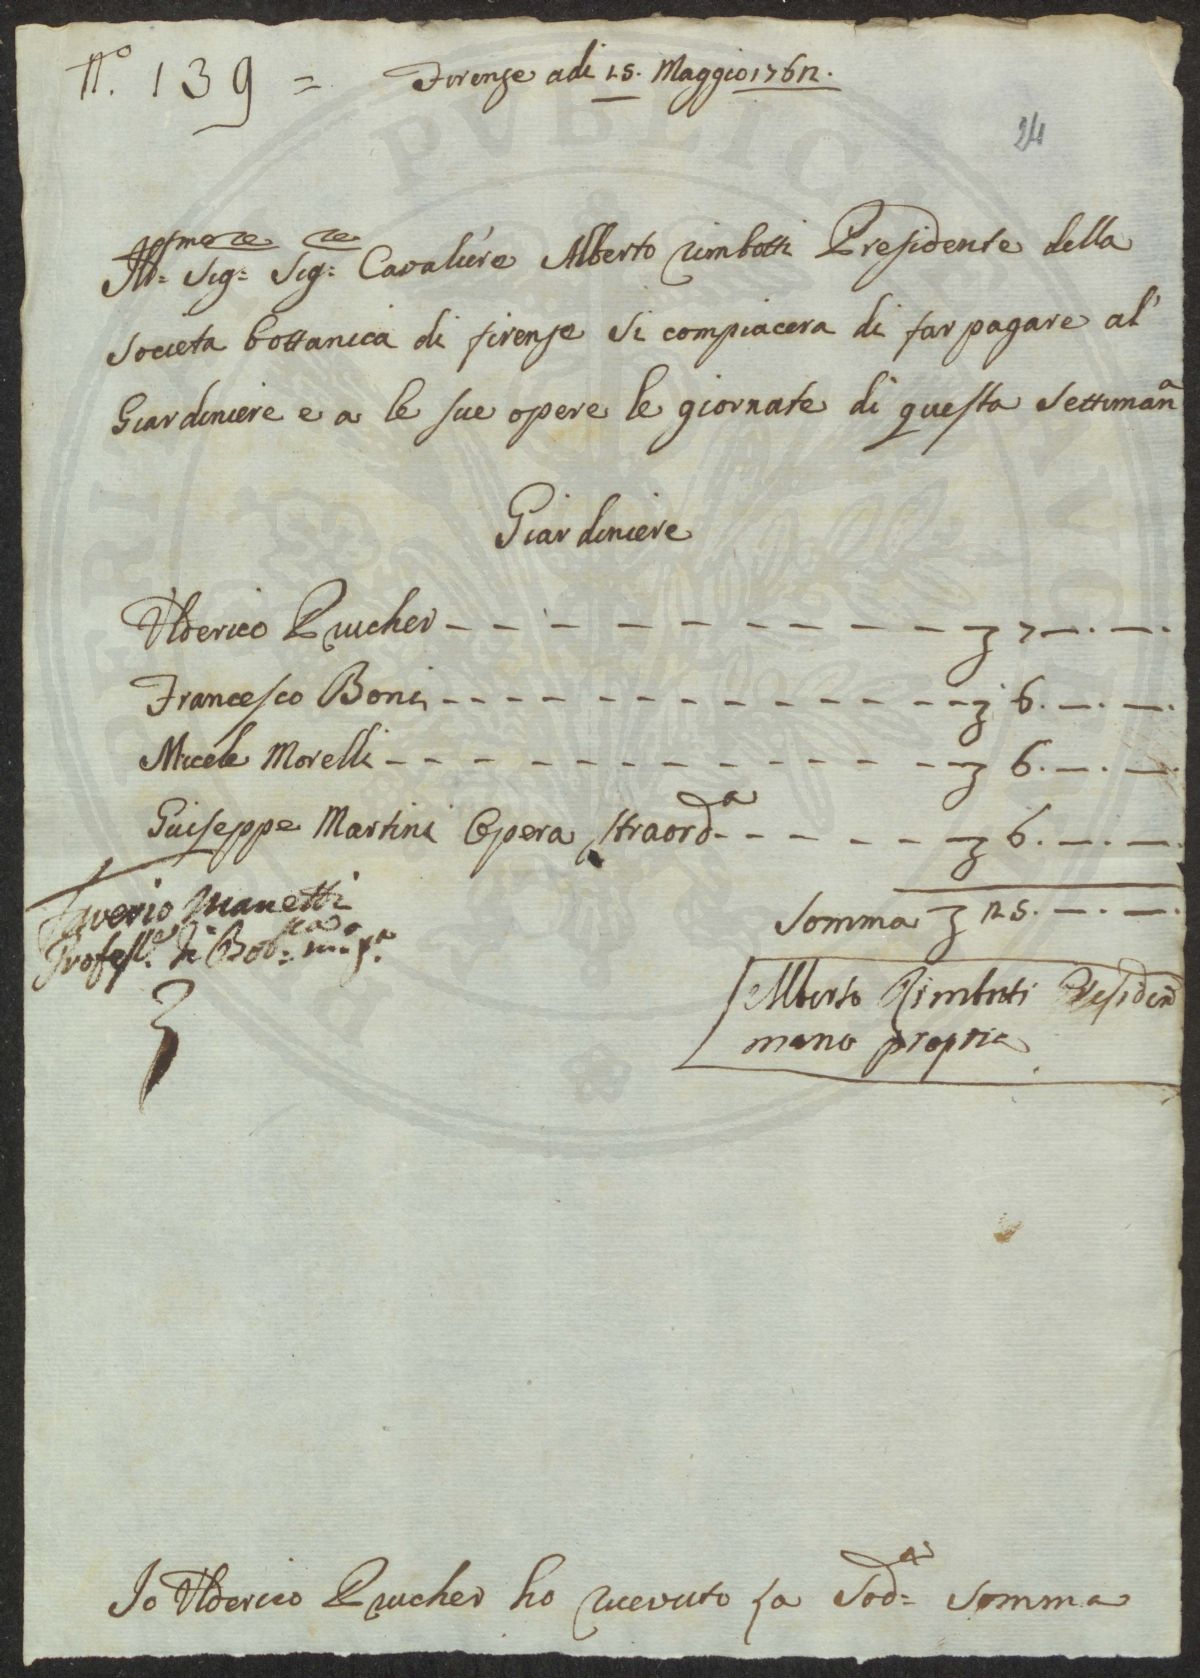 N.º 139 = Firenze adi 15. Maggio 1762.
24
Ill:mo Sig:re Sig:re Cavaliere Alberto Rimbotti Presidente della
Societa bottanica di firenze si compiacera di far pagare al'
Giardiniere e a le sue opere le giornate di questa Settimana
Giardiniere
Ulderico Prucher - - - - 7 —. —.
Francesco Boni - - - - 6. —. —.
Micele Morelli - - - - 6. —. —.
Guiseppe Martini Opera straord.a - - - - 6. —. —.
Somma 25. —. —.
Saverio Manetti
Profess.e di Bot:ca m.o p.a
Alberto Rimbotti Presiden
mano propria
Io Ulderico Prucher ho ricevuto la Sod:a Somma